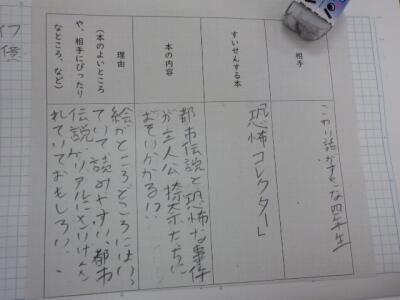 相手
こわい話がすきな四年生
すいせんする本
恐怖コレクター」
本の内容
都市伝説と恐怖な事件
が主人公たちに
おそいかかる!?
理由
(本のよいところ
や、相手にぴったり
なところ、など)
絵がところどころにはいっ
ていて読みやすい。都市
伝説がリアルにさいげんさ
れていておもしろい。